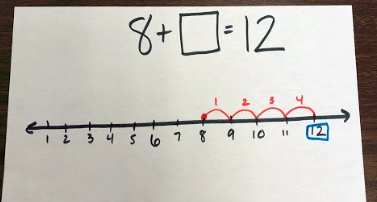 8 + □ = 12
1 2 3 4
1 2 3 4 5 6 7 8 9 10 11 12